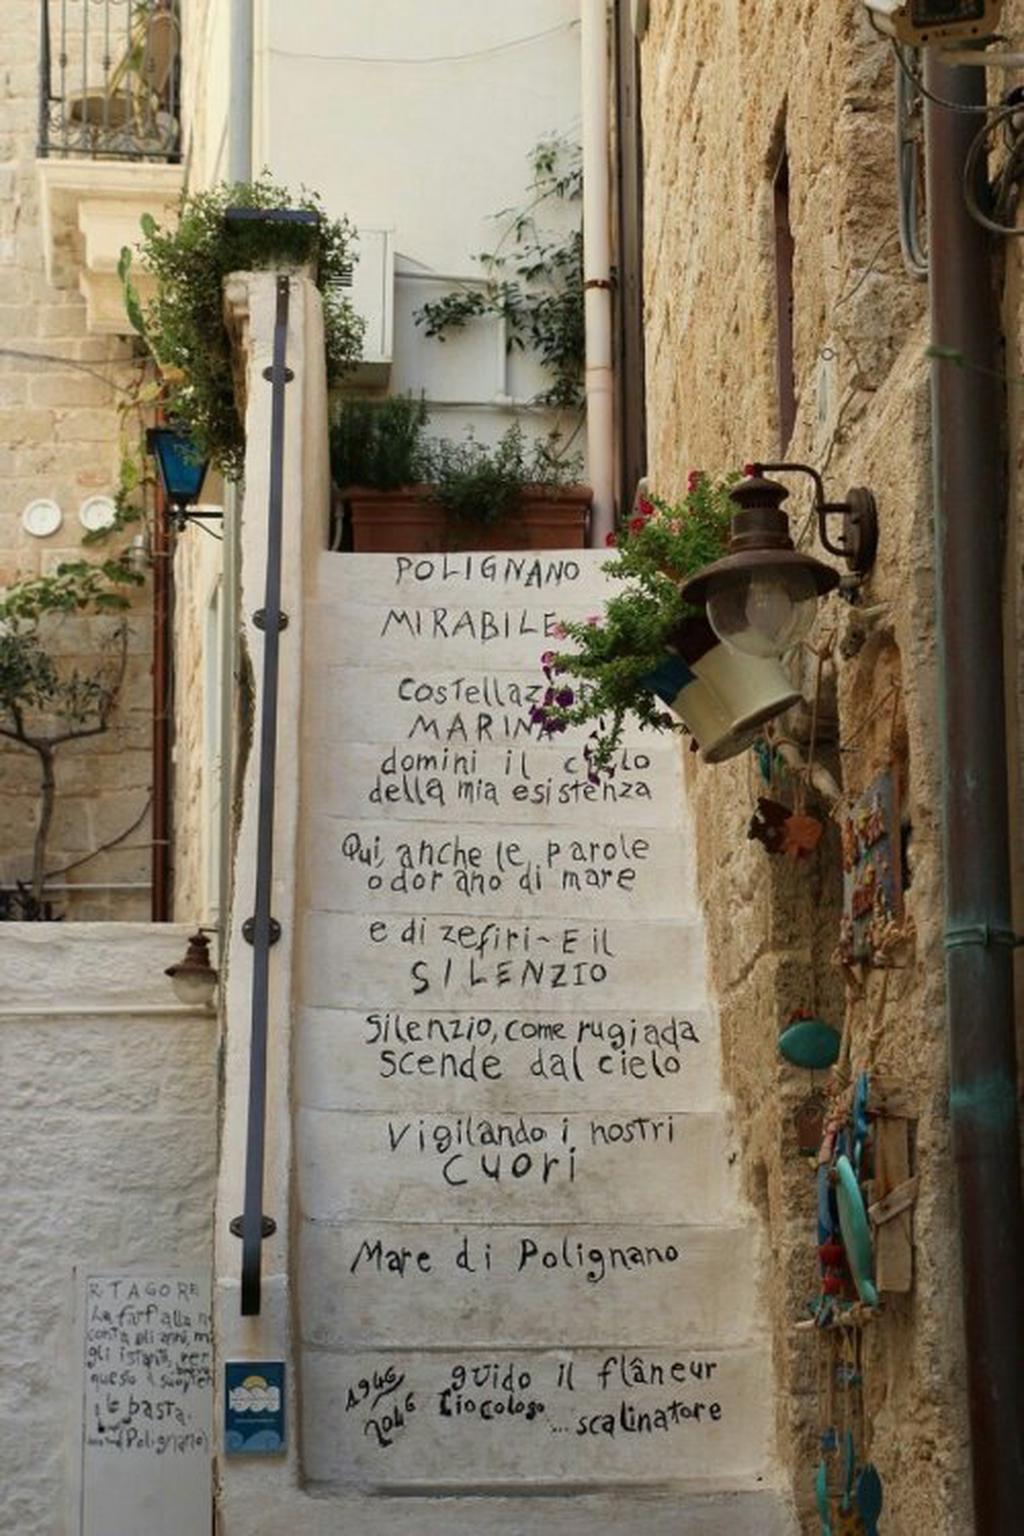 POLIGNANO
MIRABILE
MARINA
domini il cielo
della mia esistenza
Qui, anche le parole
odorano di mare
e di zefiri- E il
SILENZIO
Silenzio, come rugiada
scende dal cielo
Vigilando i nostri
cuori
Mare di Polignano
1946 guido il flâneur
2046 Ciocoloso ...scalinatore
R TAGORE
La farfalla
conta gli anni, m
gli istanti, per
questo il
le basta.
(Polignano)